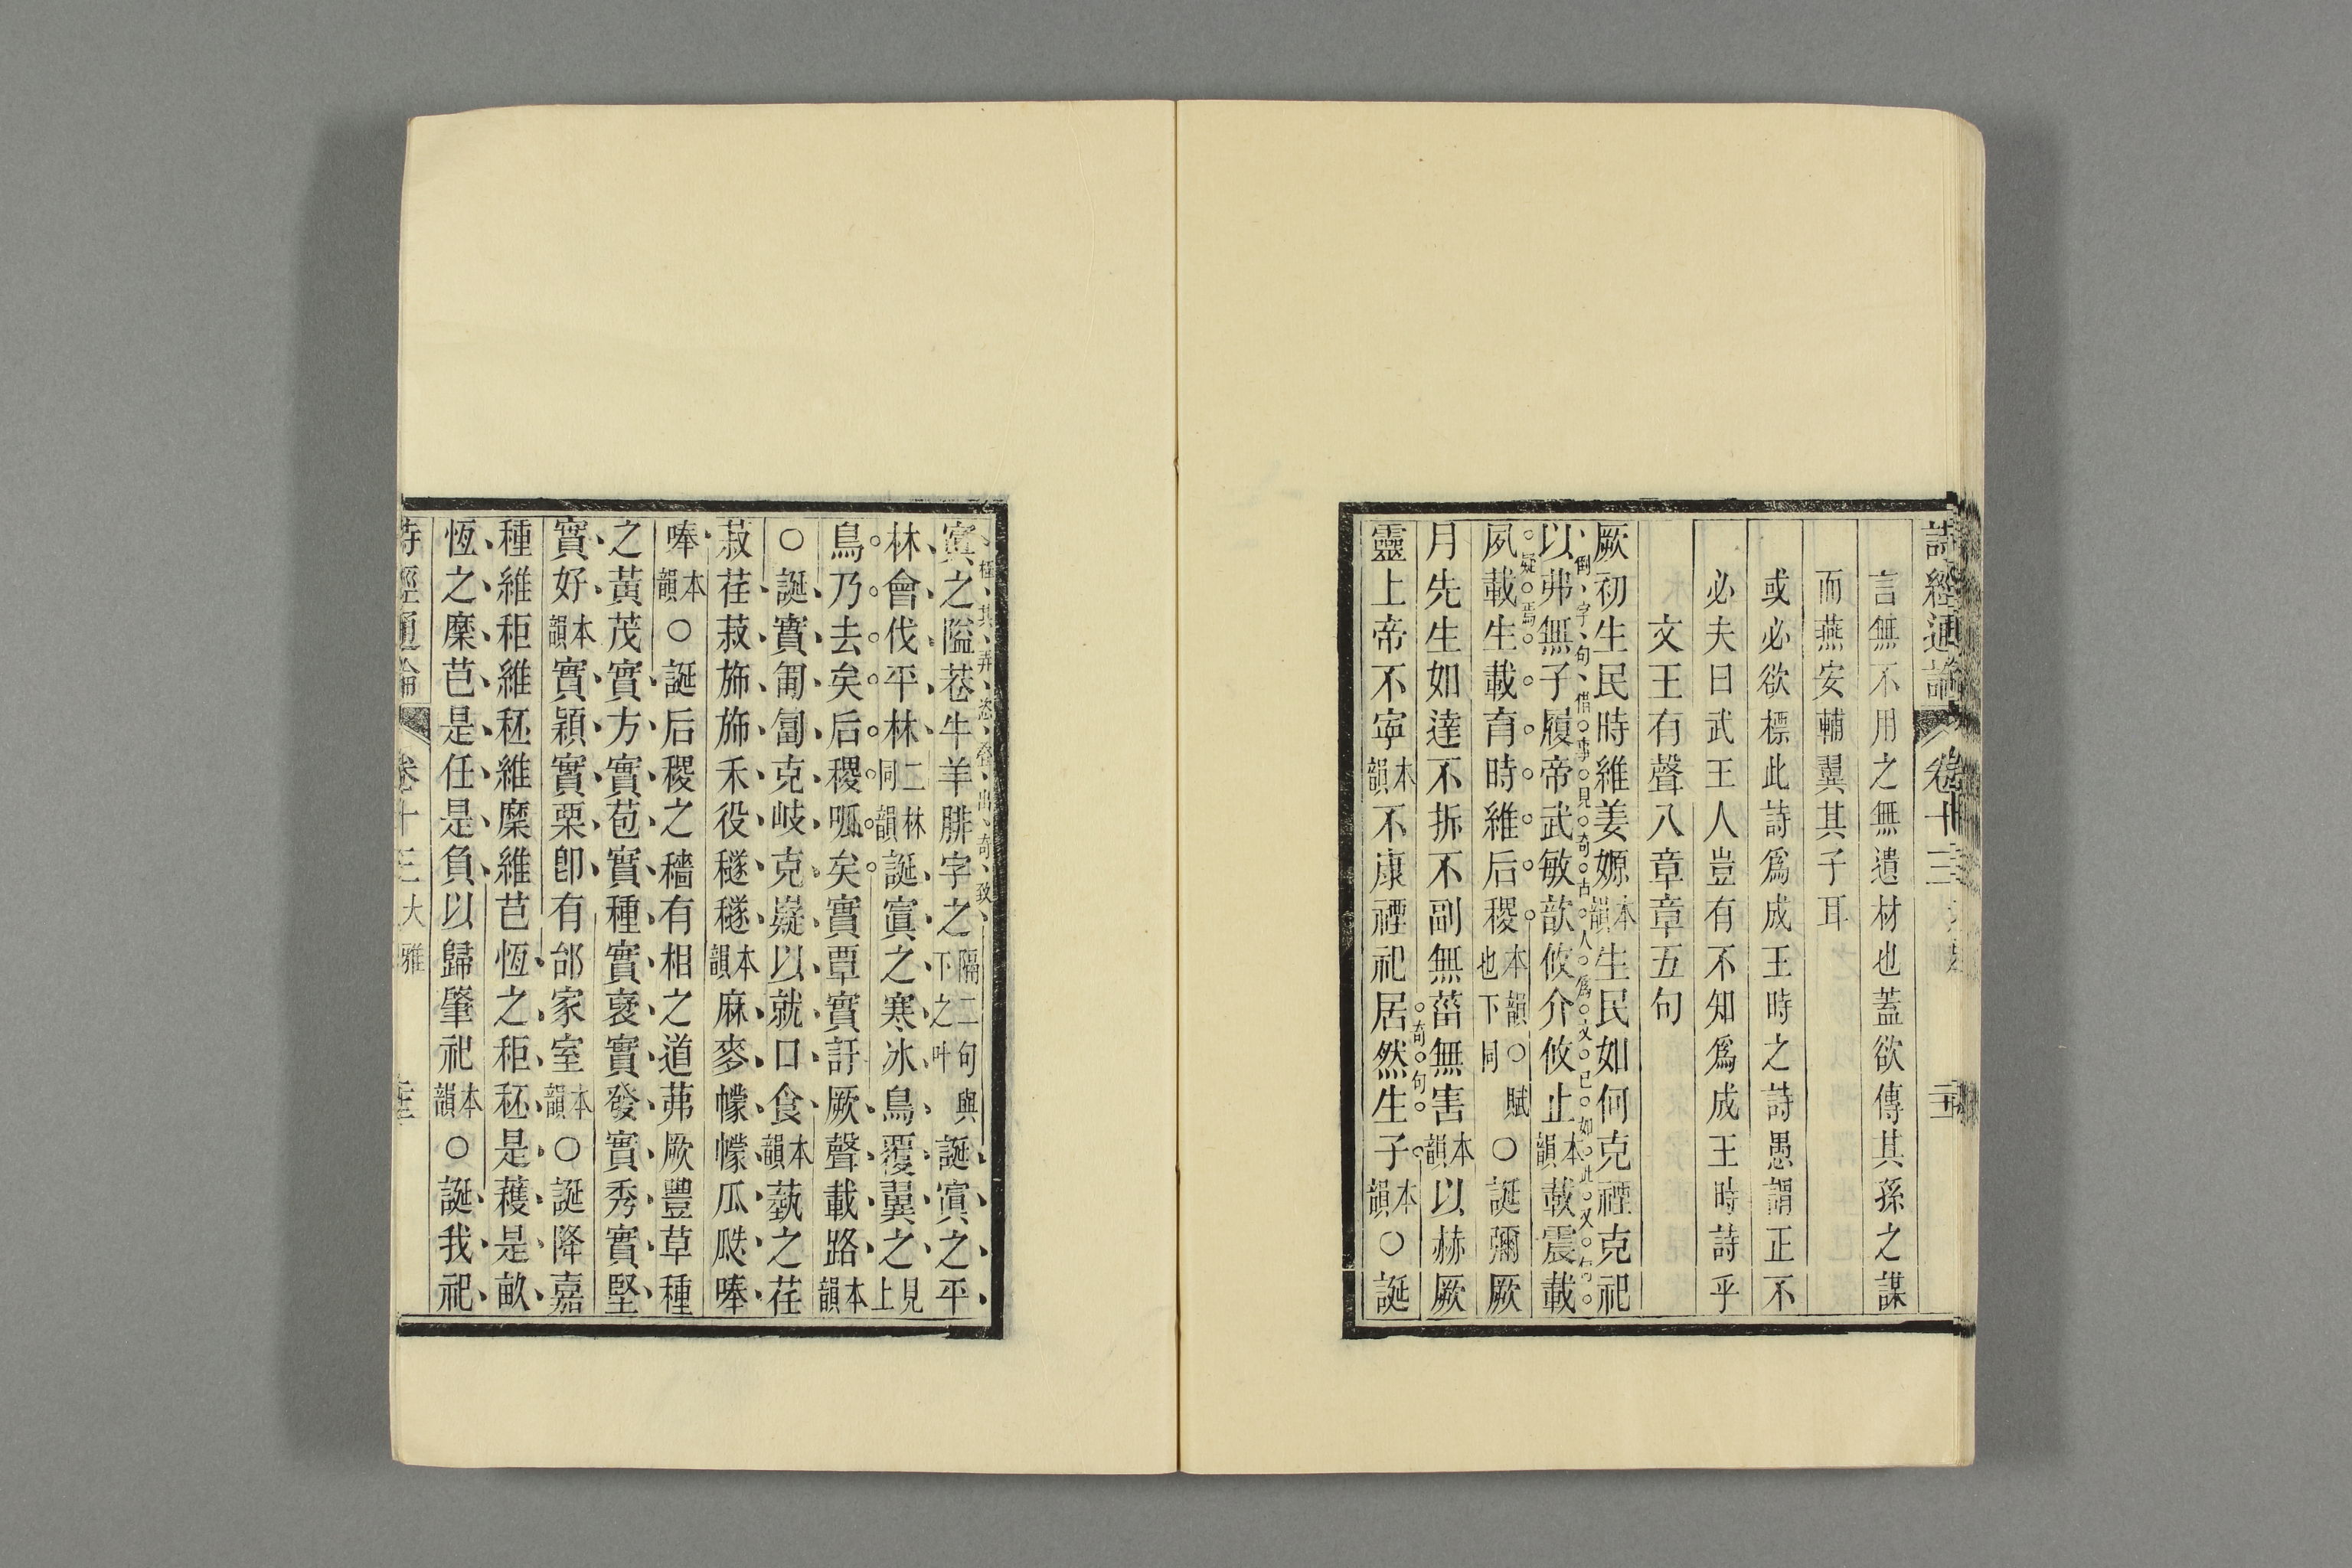 詩經通論 卷十三
言無不用之無遺材也蓋欲傳其孫之謀
而燕安輔翼其子耳
或必欲標此詩爲成王時之詩愚謂正不
必夫曰武王人豈有不知爲成王時詩乎
文王有聲八章章五句
厥初生民時維姜嫄本韻生民如何克禋克祀
倒字句借事見奇古人爲文已如此又句
以弗無子履帝武敏歆攸介攸止本韻載震載
疑焉
夙載生載育時維后稷本韻也下同○賦○誕彌厥
月先生如達不拆不副無菑無害本韻以赫厥
奇句
靈上帝不寜本韻不康禋祀居然生子本韻○誕
極其弄恣奇出奇致
寘之隘巷牛羊腓字之隔二句與下之叶誕寘之平
林會伐平林二林同韻誕寘之寒冰鳥覆翼之見上
鳥乃去矣后稷呱矣實覃實訏厥聲載路本韻
○誕實匍匐克岐克嶷以就口食本韻蓺之荏
菽荏菽斾斾禾役穟穟本韻麻麥幪幪瓜瓞唪
唪本韻○誕后稷之穡有相之道茀厥豐草種
之黃茂實方實苞實種實褎實發實秀實堅
實好本韻實穎實栗卽有邰家室本韻○誕降嘉
種維秬維秠維穈維芑恆之秬秠是穫是畝
恆之穈芑是任是負以歸肇祀本韻○誕我祀
詩經通論 卷十三大雅